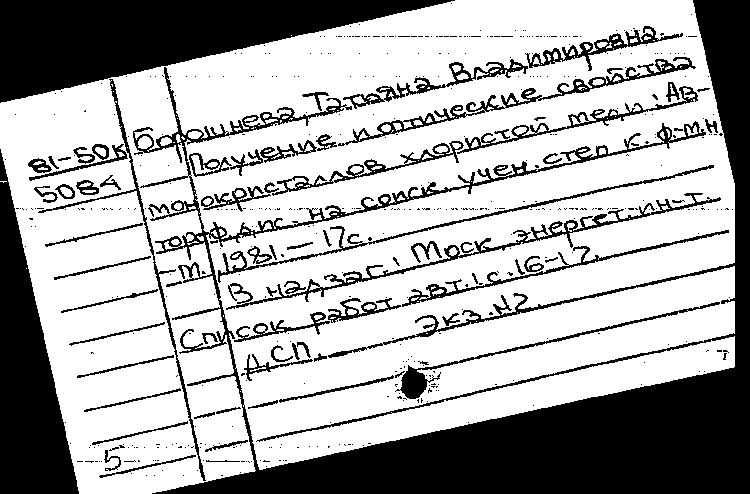 Борошнева, Татьяна Владимировна.
81-50к
5084
Получение и оптические свойства
монокристаллов хлористой меди: Ав-
тореф. дис. на соиск. учен. степ к. ф-м.н.
-М., 1981. - 17с.
В надзаг.: Моск. энергет. ин-т.
Список работ авт.: с. 16-17.
ДСП. Экз. №2.
5